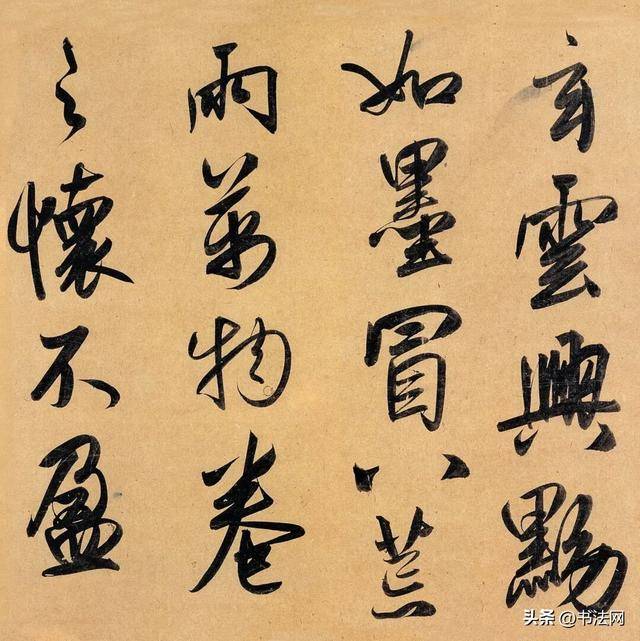 玄雲興
如墨冒八荒
雨萬物卷
之懷不盈
头条 @书法网